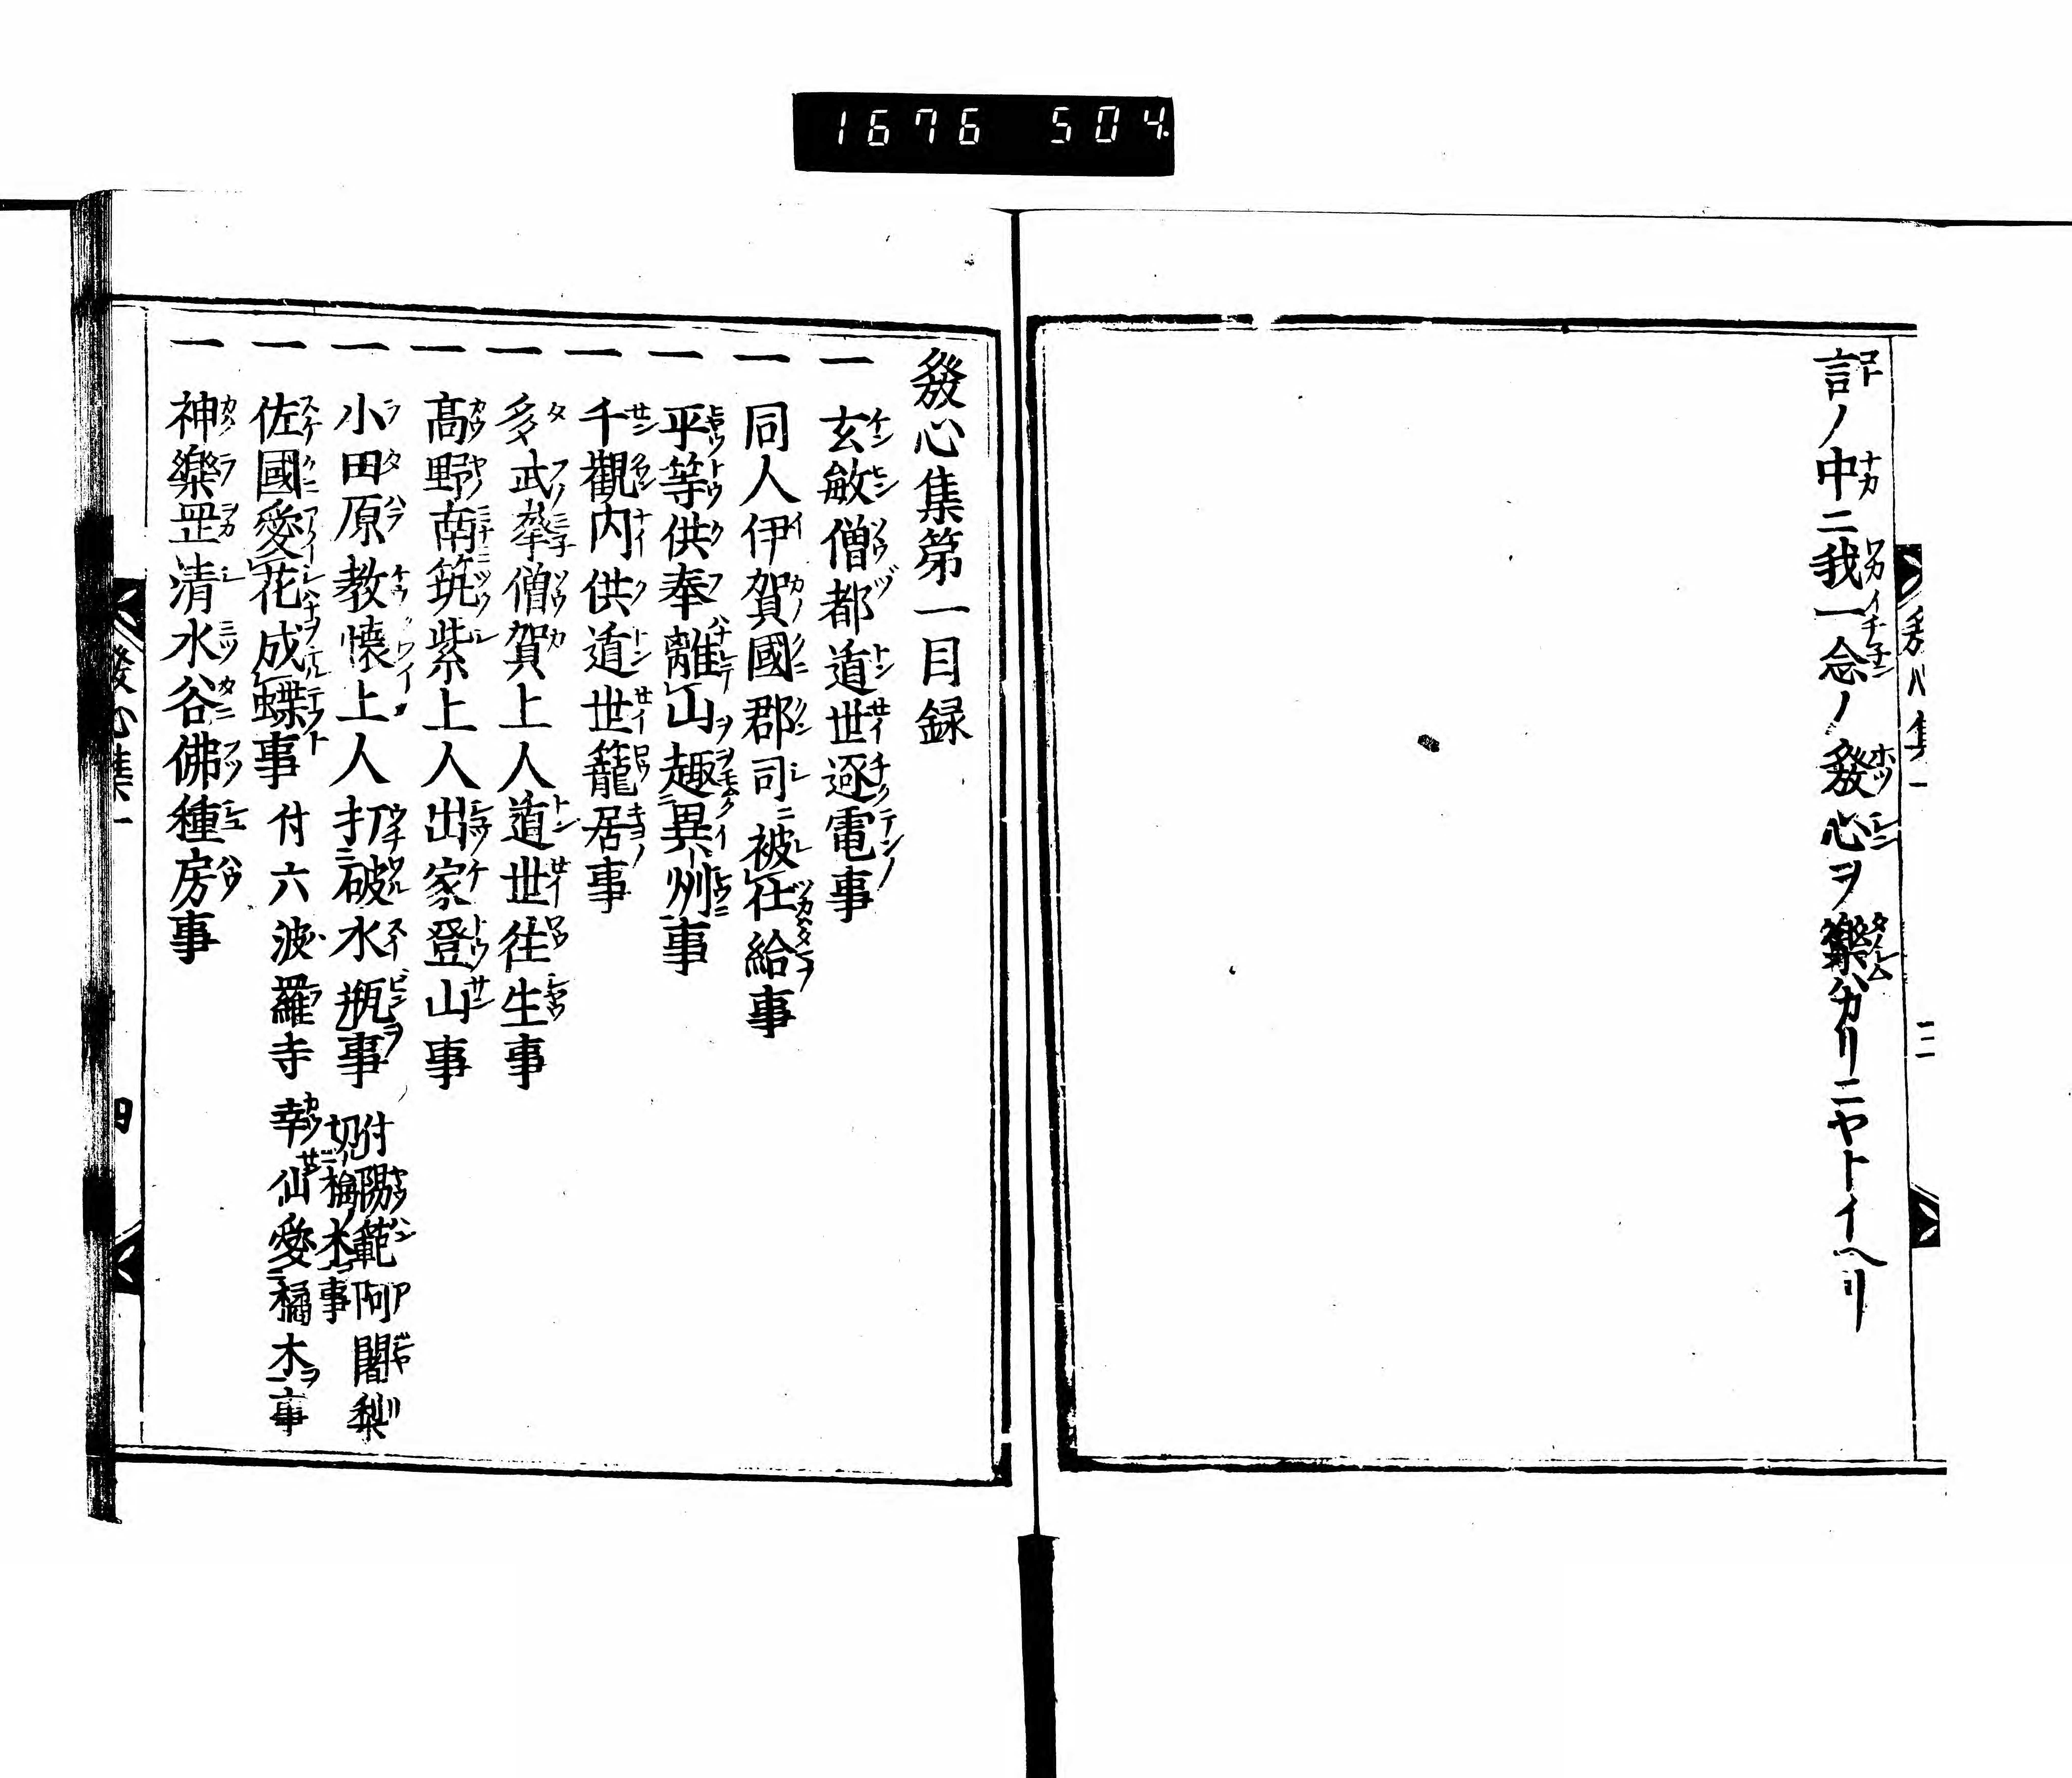 1676 504.
言ノ中ニ我一念ノ發心ヲ樂ハカリニヤトイヘリ
發心集一
三
發心集第一目録
一 玄敏僧都遁世逐電事
一 同人伊賀國郡司ニ被仕給事
一 平等供奉離山趣異州事
一 千觀内供遁世籠居事
一 多武峯僧賀上人遁世往生事
一 髙野南筑紫上人出家登山事
一 小田原教懷上人打破水瓶事 付陽範阿闍梨
切梅木事
一 佐國愛花成蝶事 付六波羅寺幸仙愛橘木事
一 神樂罡清水谷佛種房事
發心集一
四